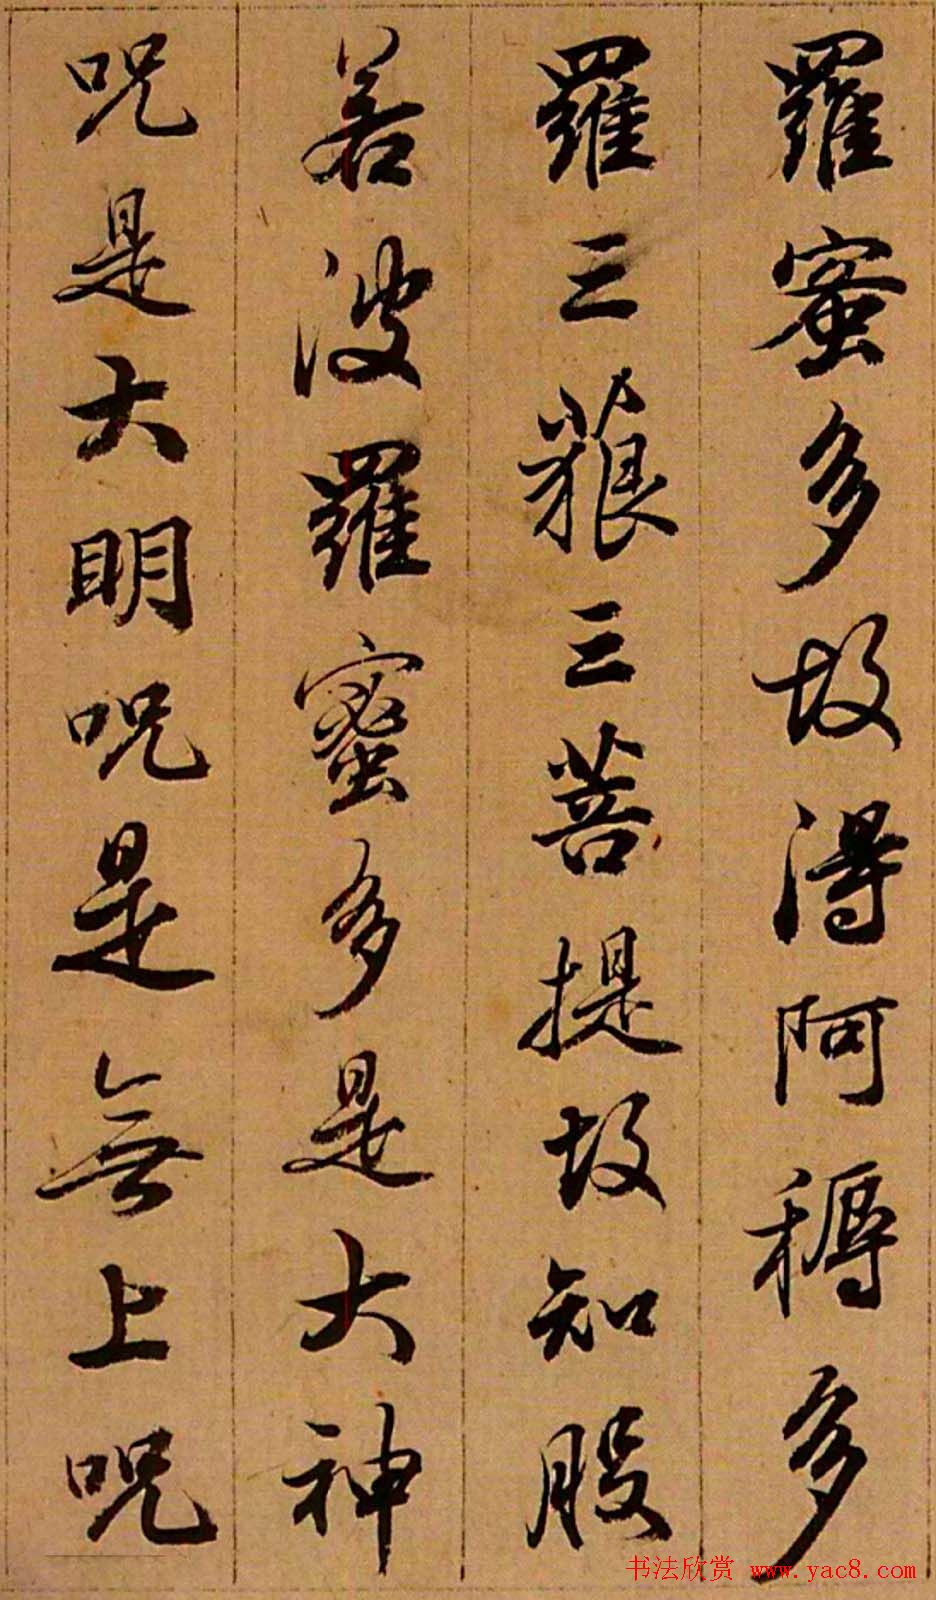 羅蜜多故得阿耨多
羅三藐三菩提故知般
若波羅蜜多是大神
呪是大明呪是無上呪
书法欣赏 www.yac8.com